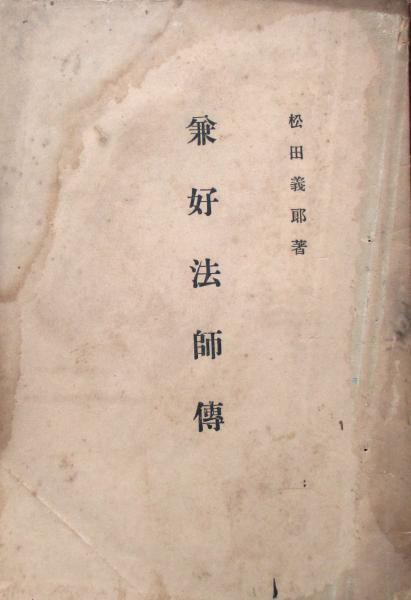 松田義郎著
兼好法師傳